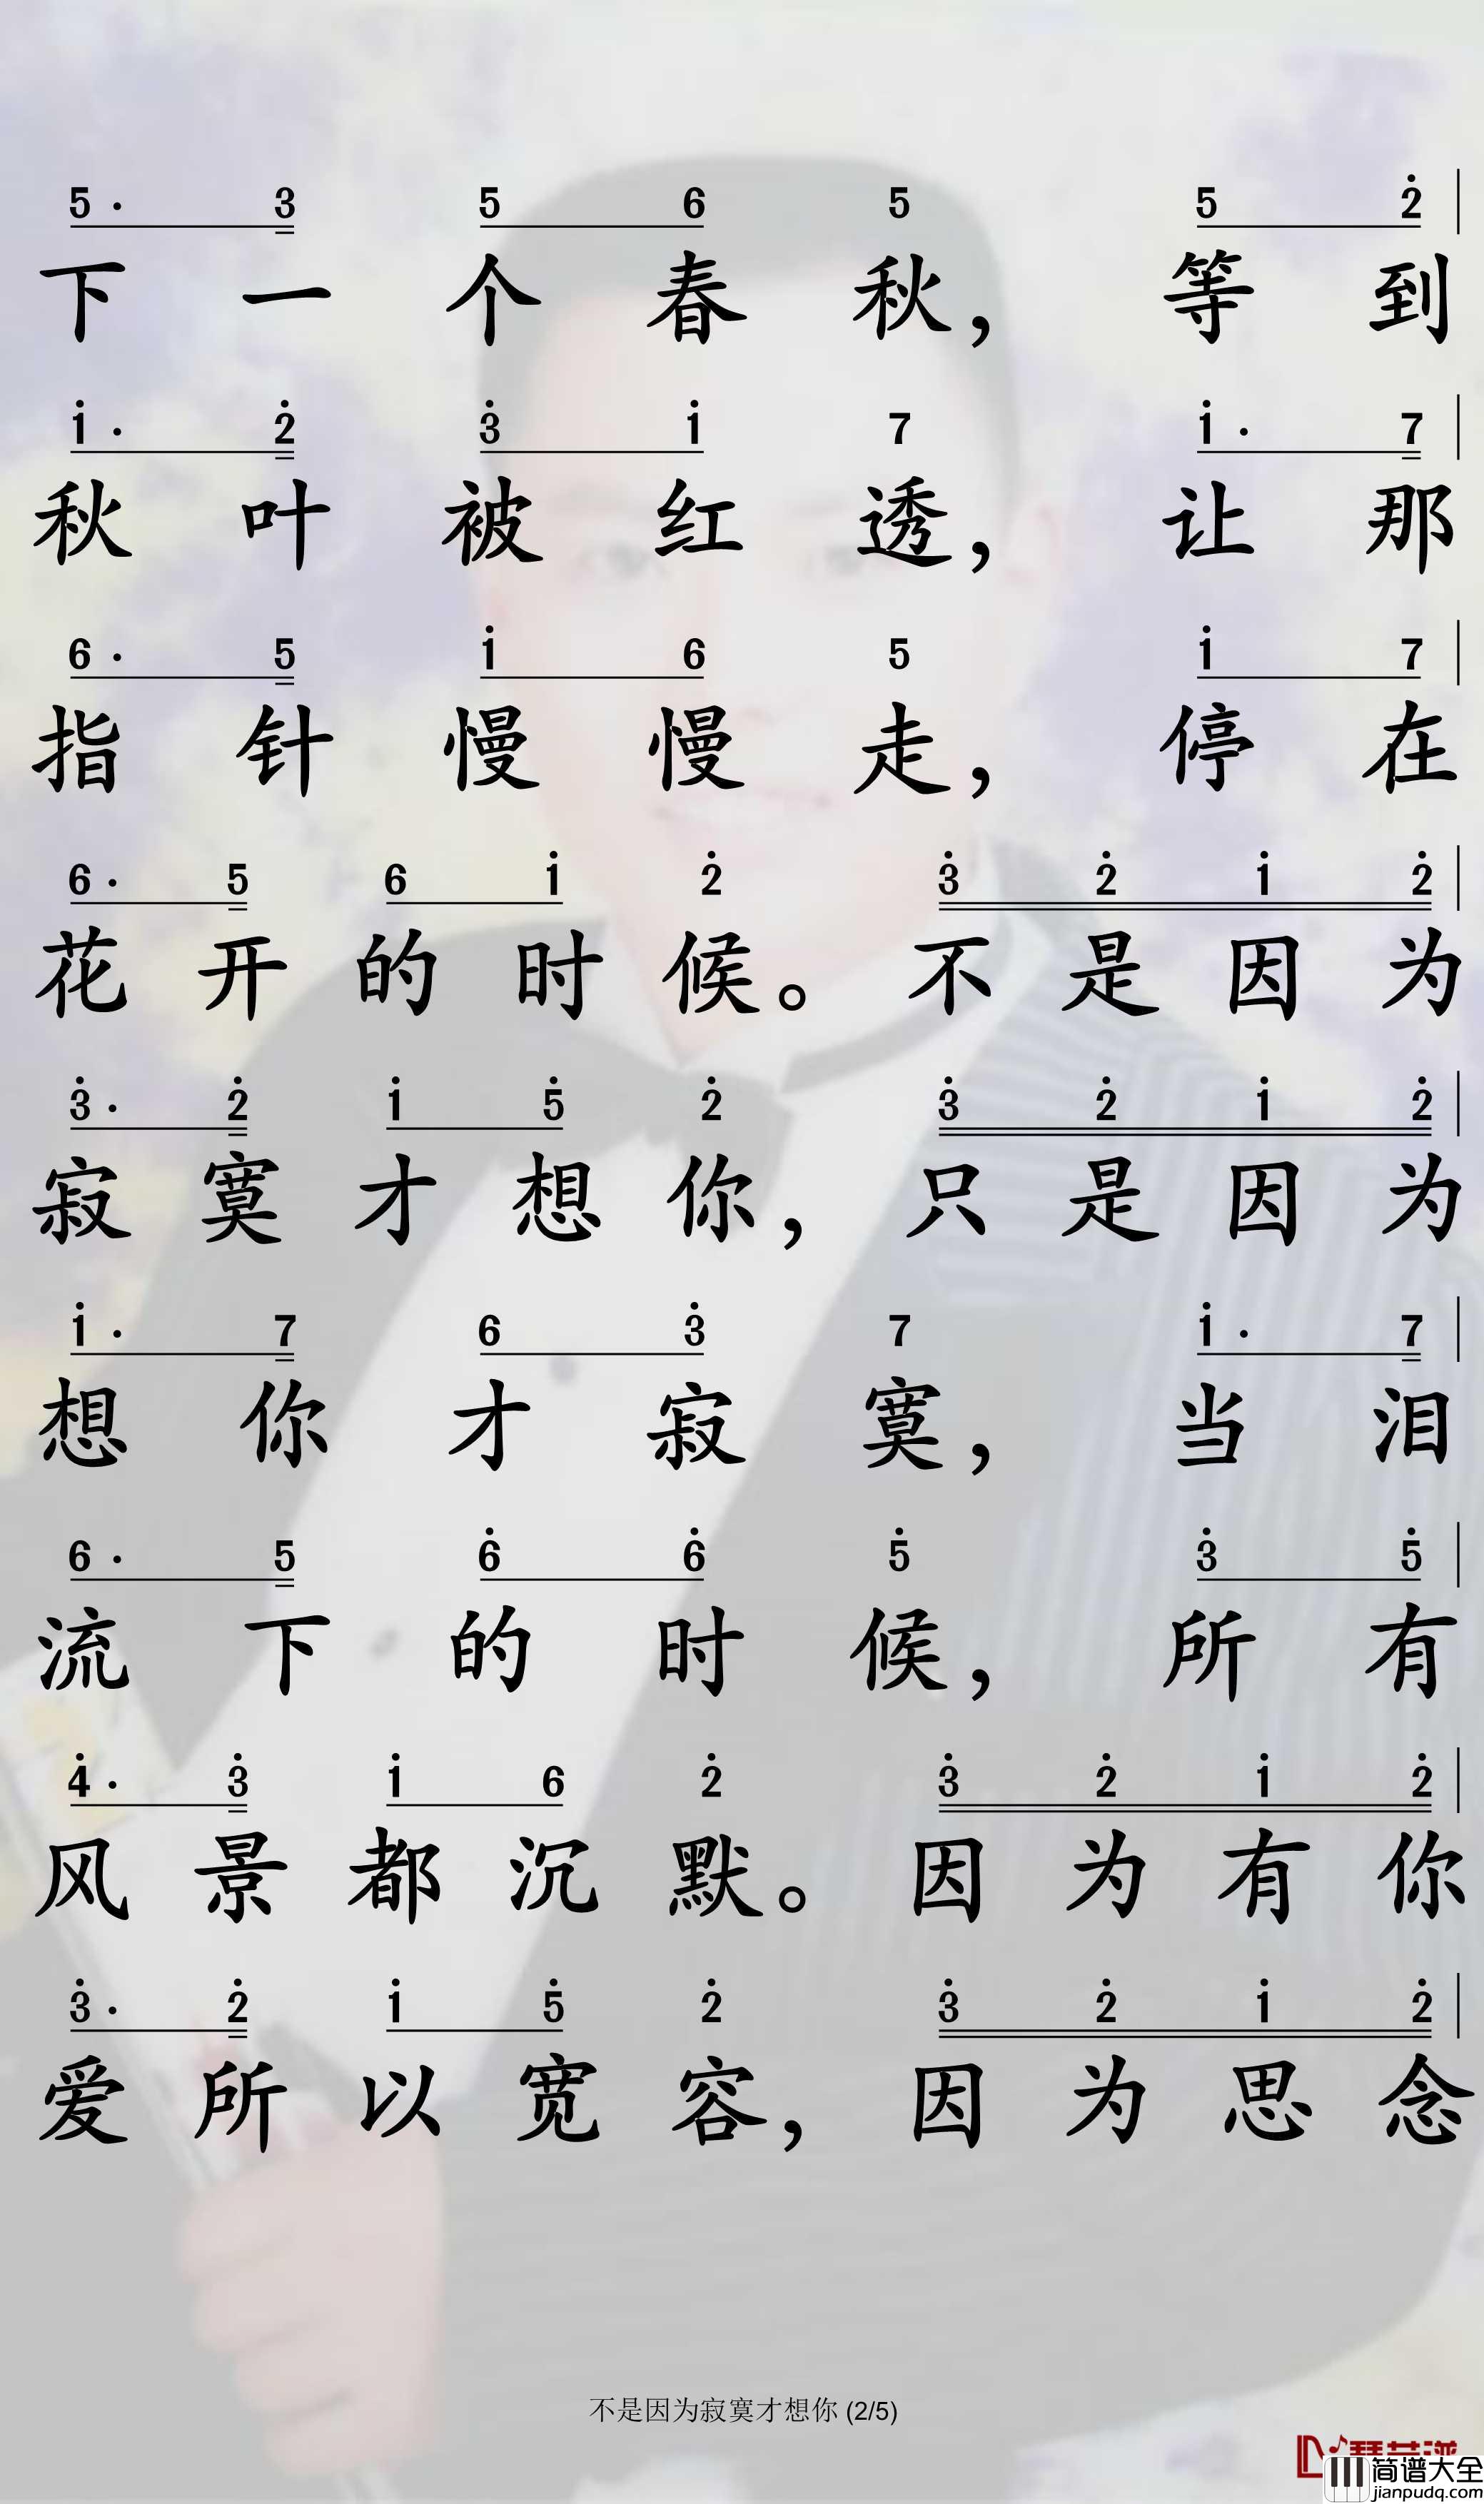 5· 3 5 6 5 5 2̇
下一个春秋， 等到
1̇· 2̇ 3̇ 1̇ 7 1̇· 7
秋叶被红透， 让那
6· 5 1̇ 6 5 1̇ 7
指针慢慢走， 停在
6· 5 6 1̇ 2̇ 3̇ 2̇ 1̇ 2̇
花开的时候。 不是因为
3̇· 2̇ 1̇ 5̇ 2̇ 3̇ 2̇ 1̇ 2̇
寂寞才想你， 只是因为
1̇· 7 6 3̇ 7 1̇· 7
想你才寂寞， 当泪
6· 5 6̇ 6̇ 5̇ 3̇ 5̇
流下的时候， 所有
4̇· 3̇ 1̇ 6 2̇ 3̇ 2̇ 1̇ 2̇
风景都沉默。 因为有你
3̇· 2̇ 1̇ 5̇ 2̇ 3̇ 2̇ 1̇ 2̇
爱所以宽容， 因为思念
不是因为寂寞才想你 (2/5)
简谱大全
jianpudq.com